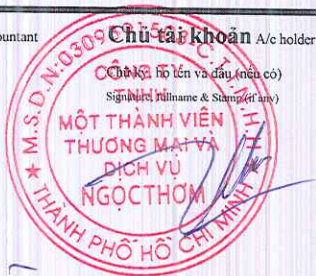 ountant
Chủ tài khoản A/c holder
Chữ ký, họ tên và dấu (nếu có)
Signature, fullname & Stamp (if any)
CÔNG TY
TNHH
MỘT THÀNH VIÊN
THƯƠNG MẠI VÀ
DỊCH VỤ
NGỌC THƠM
THÀNH PHỐ HỒ CHÍ MINH